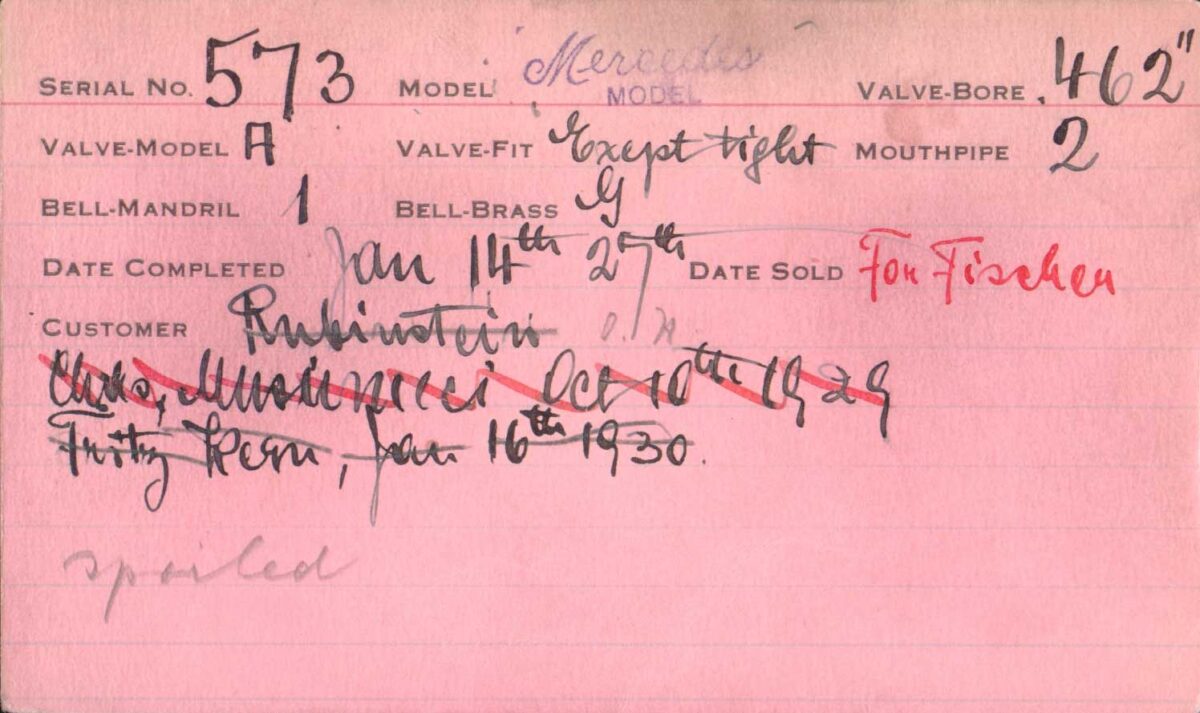 SERIAL No. 573 MODEL Mercedes MODEL VALVE-BORE .462"
VALVE-MODEL A VALVE-FIT Exept tight MOUTHPIPE 2
BELL-MANDRIL 1 BELL-BRASS G
DATE COMPLETED Jan 14th 27th DATE SOLD For Fischer
CUSTOMER Rubinstein
Oct 10th 1929
Fritz Kern, Jan 16th 1930.
spoiled